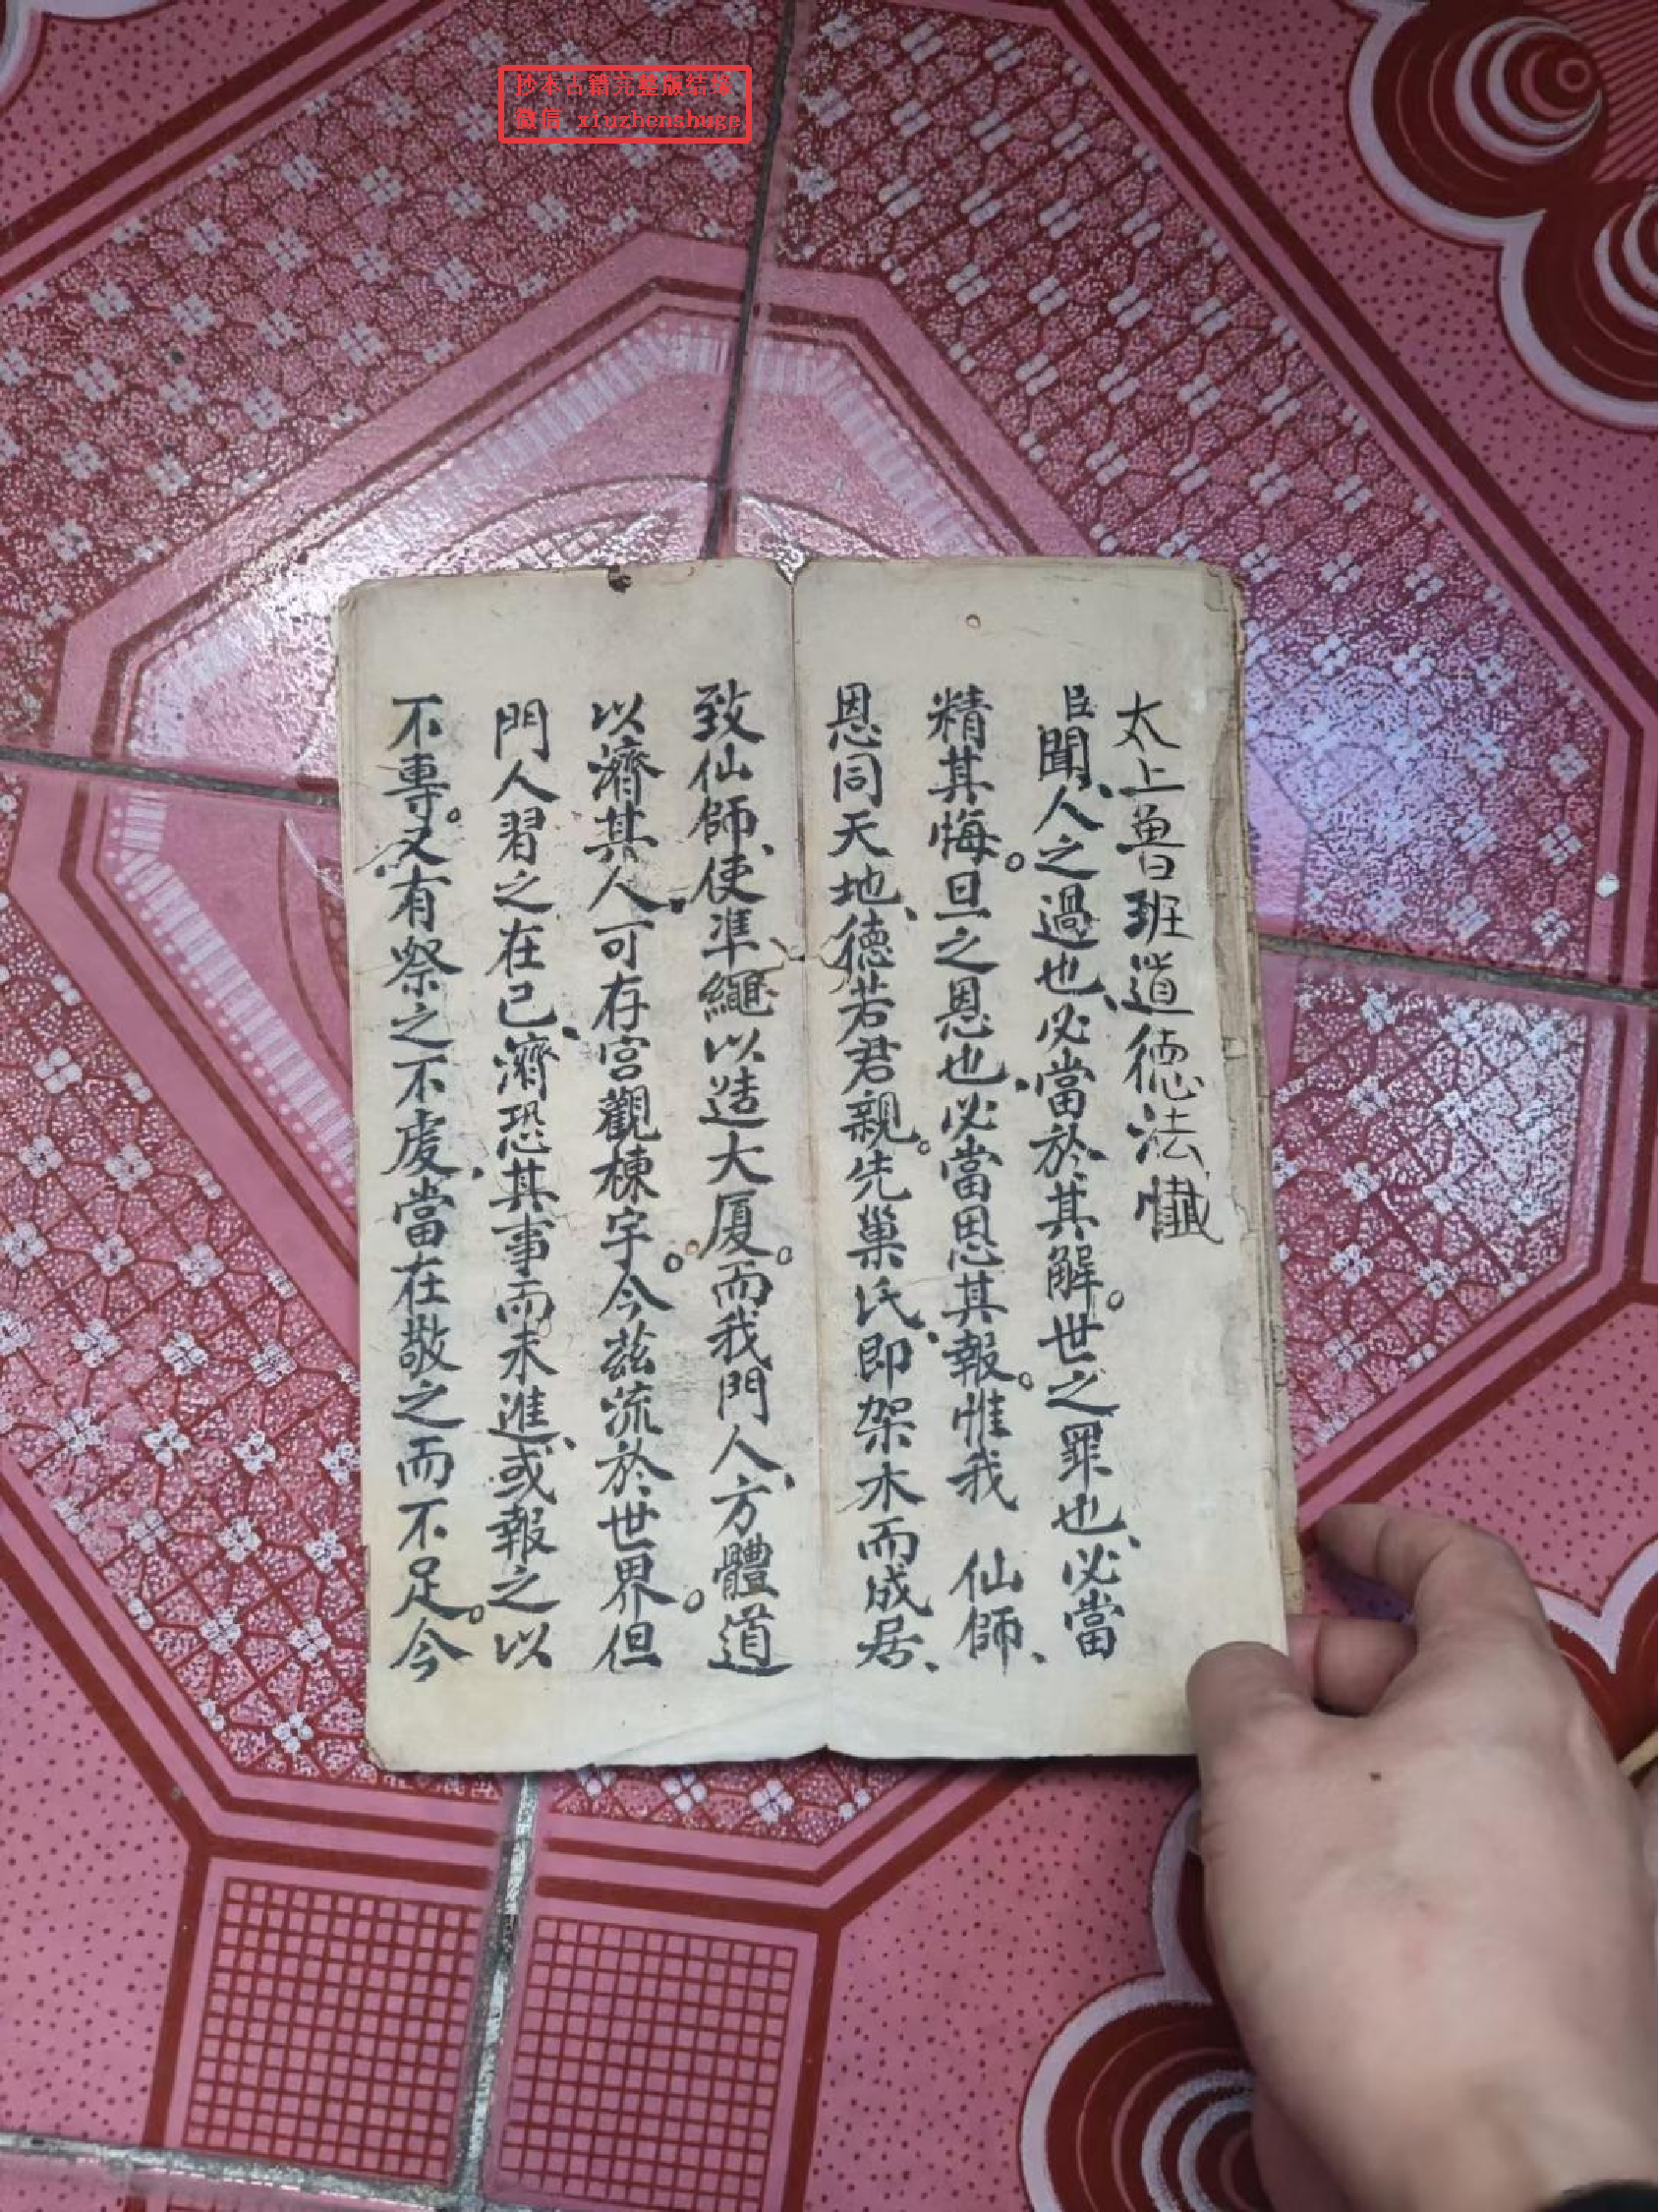 抄本古籍完整版结缘
微信 xiuzhenshuge
太上魯班道德法懺
臣聞、人之過也、必當於其解。世之罪也、必當
精其悔。旦之恩也、必當思其報。惟我 仙師、
恩同天地、德若君親。先巢氏、即架木而成居、
致仙師、使準繩以造大厦。而我門人、方體道
以濟其人、可存宮觀棟宇。今茲流於世界。但
門人習之在己、濟恐其事而未進、或報之以
不專。又有祭之不虔、當在敬之而不足。今